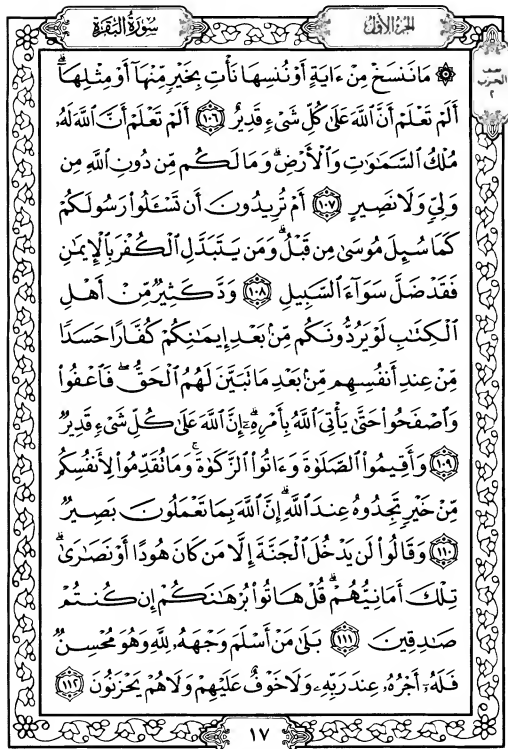 سُورَةُ البَقَرَةِ
الجُزءُ الأَوَّلُ
نصف
الحزب
٢
۞ مَا نَنسَخْ مِنْ ءَايَةٍ أَوْ نُنسِهَا نَأْتِ بِخَيْرٍ مِّنْهَآ أَوْ مِثْلِهَآ ۗ
أَلَمْ تَعْلَمْ أَنَّ ٱللَّهَ عَلَىٰ كُلِّ شَىْءٍ قَدِيرٌ ١٠٦ أَلَمْ تَعْلَمْ أَنَّ ٱللَّهَ لَهُۥ
مُلْكُ ٱلسَّمَٰوَٰتِ وَٱلْأَرْضِ ۗ وَمَا لَكُم مِّن دُونِ ٱللَّهِ مِن
وَلِىٍّ وَلَا نَصِيرٍ ١٠٧ أَمْ تُرِيدُونَ أَن تَسْـَٔلُوا۟ رَسُولَكُمْ
كَمَا سُئِلَ مُوسَىٰ مِن قَبْلُ ۗ وَمَن يَتَبَدَّلِ ٱلْكُفْرَ بِٱلْإِيمَٰنِ
فَقَدْ ضَلَّ سَوَآءَ ٱلسَّبِيلِ ١٠٨ وَدَّ كَثِيرٌ مِّنْ أَهْلِ
ٱلْكِتَٰبِ لَوْ يَرُدُّونَكُم مِّنۢ بَعْدِ إِيمَٰنِكُمْ كُفَّارًا حَسَدًا
مِّنْ عِندِ أَنفُسِهِم مِّنۢ بَعْدِ مَا تَبَيَّنَ لَهُمُ ٱلْحَقُّ ۖ فَٱعْفُوا۟
وَٱصْفَحُوا۟ حَتَّىٰ يَأْتِىَ ٱللَّهُ بِأَمْرِهِۦٓ ۗ إِنَّ ٱللَّهَ عَلَىٰ كُلِّ شَىْءٍ قَدِيرٌ
١٠٩ وَأَقِيمُوا۟ ٱلصَّلَوٰةَ وَءَاتُوا۟ ٱلزَّكَوٰةَ ۚ وَمَا تُقَدِّمُوا۟ لِأَنفُسِكُم
مِّنْ خَيْرٍ تَجِدُوهُ عِندَ ٱللَّهِ ۗ إِنَّ ٱللَّهَ بِمَا تَعْمَلُونَ بَصِيرٌ
١١٠ وَقَالُوا۟ لَن يَدْخُلَ ٱلْجَنَّةَ إِلَّا مَن كَانَ هُودًا أَوْ نَصَٰرَىٰ ۗ
تِلْكَ أَمَانِيُّهُمْ ۗ قُلْ هَاتُوا۟ بُرْهَٰنَكُمْ إِن كُنتُمْ
صَٰدِقِينَ ١١١ بَلَىٰ مَنْ أَسْلَمَ وَجْهَهُۥ لِلَّهِ وَهُوَ مُحْسِنٌ
فَلَهُۥٓ أَجْرُهُۥ عِندَ رَبِّهِۦ وَلَا خَوْفٌ عَلَيْهِمْ وَلَا هُمْ يَحْزَنُونَ ١١٢
١٧